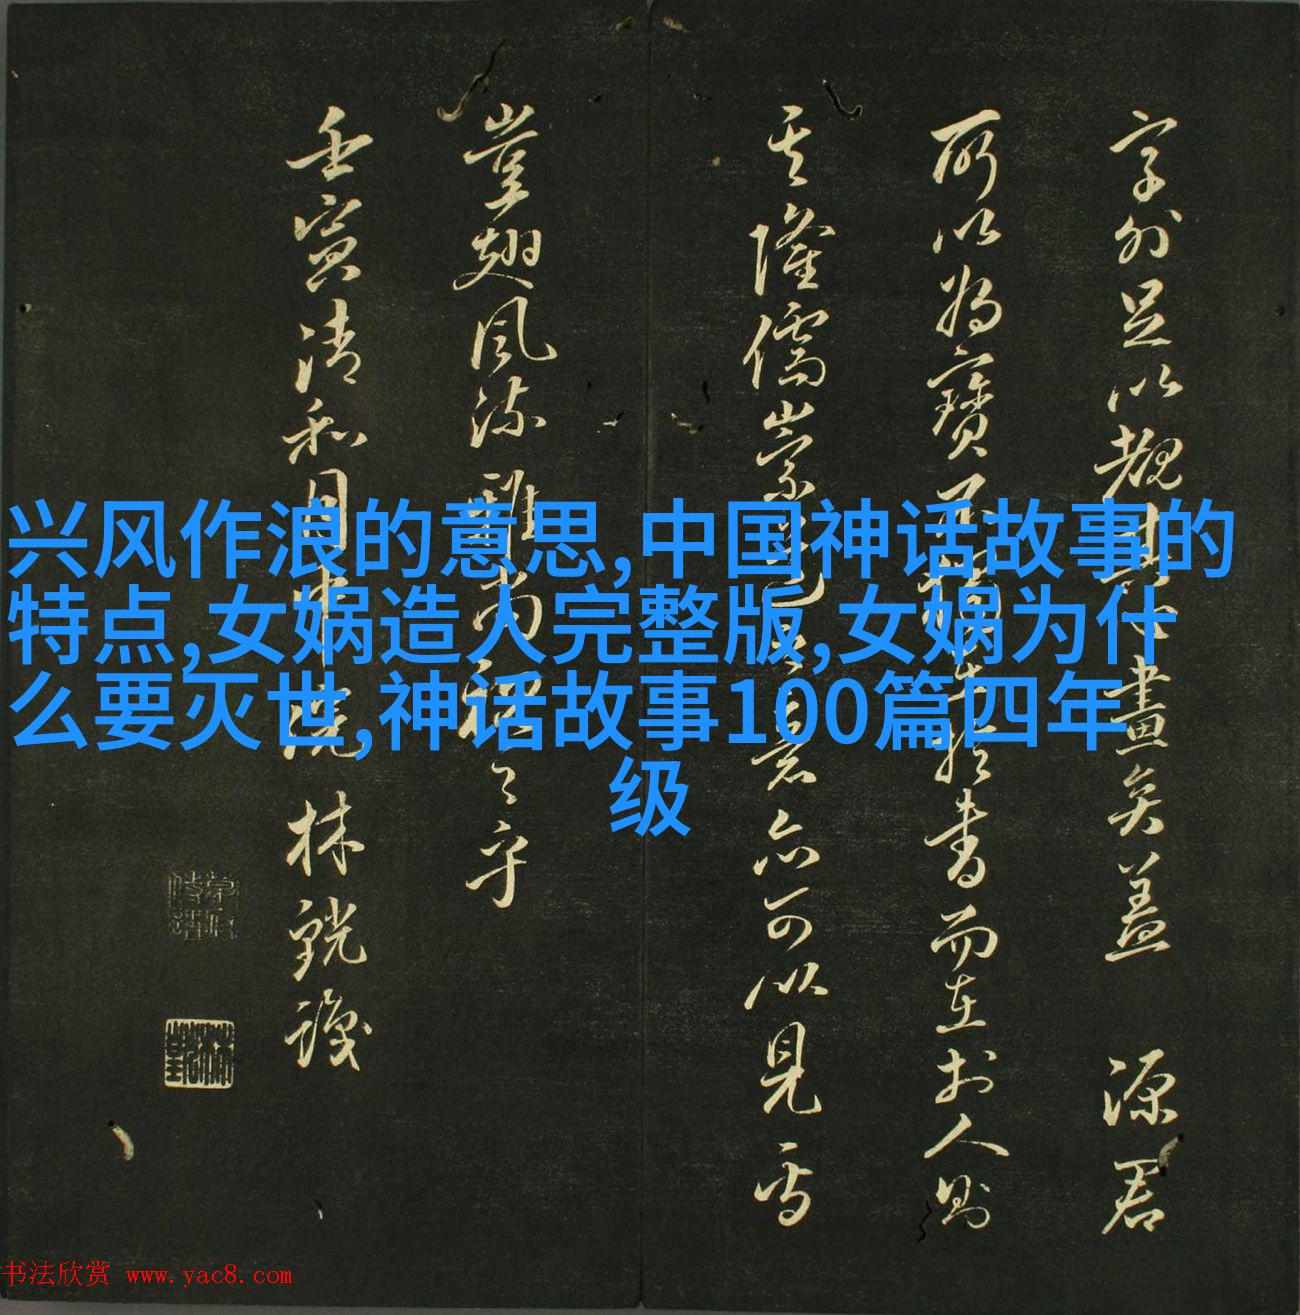 兴风作浪的意思,中国神话故事的
特点,女娲造人完整版,女娲为什
么要灭世,神话故事100篇四年
级
字外足以觀
畫矣蓋
源君
所以為寶
於書而在於人則
其隆儒崇
意亦可以見焉
業趐風流雅尚
守
壬寅清和月
林銑識
书法欣赏 www.yac8.com